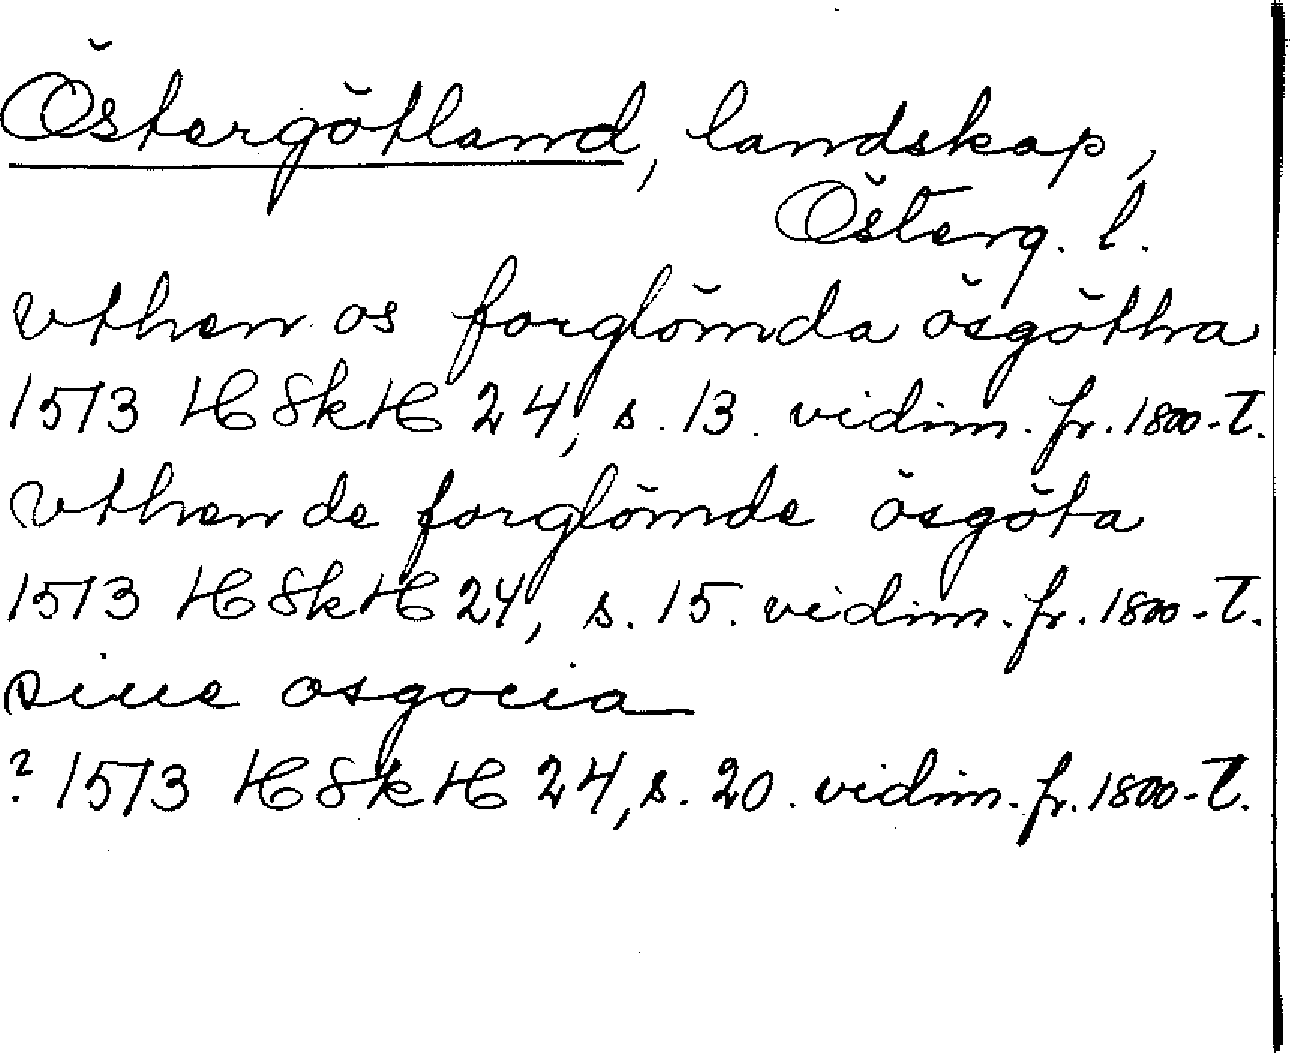 Östergötland, landskap,
Österg. l.
vthen os forglömda ösgöthra
1573 HSkH 24, s. 13. vidim. fr. 1800-t.
vthen de forglömde ösgöta
1573 HSkH 24, s. 15. vidim. fr. 1800-t.
siue osgocia
? 1573 HSkH 24, s. 20. vidim. fr. 1800-t.